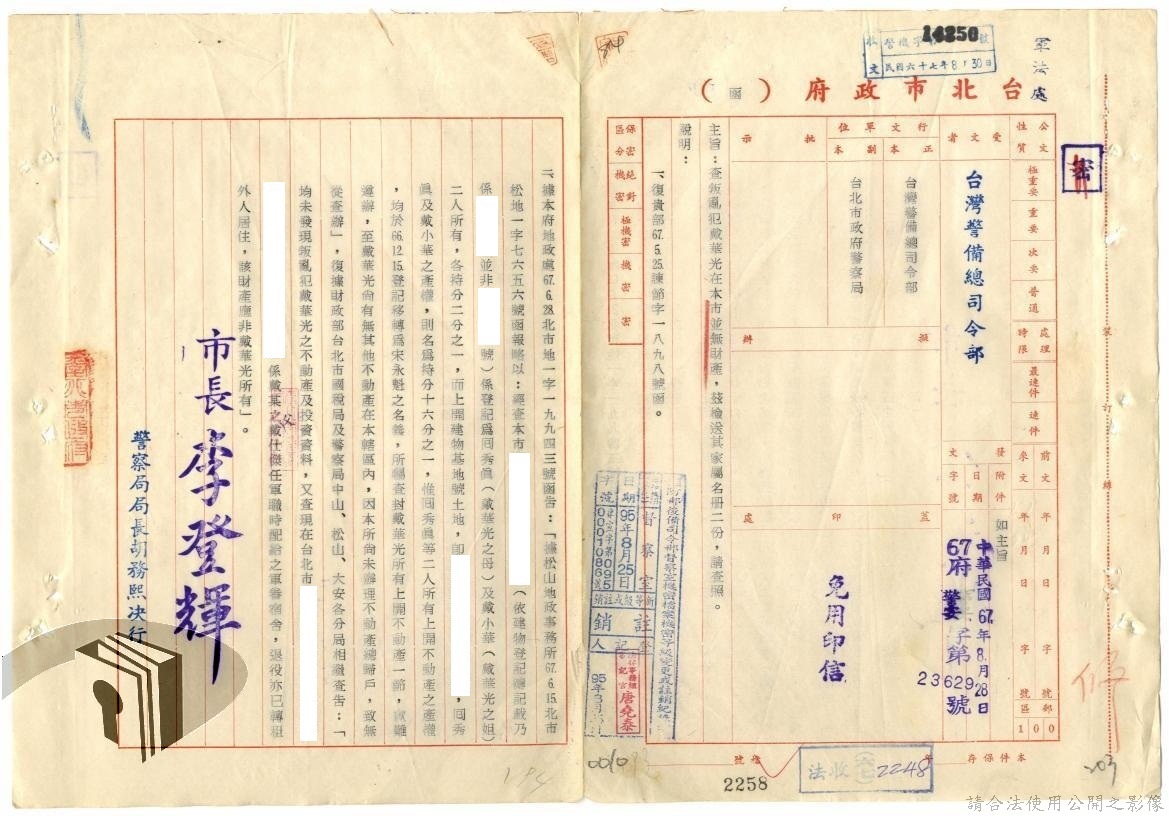 軍法處
14250
民國六十七年8月30日
台北市政府（函）
密
公文性質
極重要
重要
次要
普通
處理時限
最速件
速件
前文
來文
年
月
日
字
號
受文者
台灣警備總司令部
發文
附件
如主旨
日期
中華民國67.年8.月28日
字號
67府警安字第23629號
行文單位
正本
台灣警備總司令部
副本
台北市政府警察局
批示
擬辦
蓋印處
免用印信
主旨：查叛亂犯戴華光在本市並無財產，茲檢送其家屬名冊二份，請查照。
說明：
一、復貴部67.5.25.諫節字一八九八號函。
保密區分
絕對機密
極機密
機密
密
二、據本府地政處67.6.28.北市地一字一九九四三號函告：「據松山地政事務所67.6.15.北市
松地一字七六五六號函報略以：經查本市
（依建物登記簿記載乃
係
並非
號）係登記爲回秀眞（戴華光之母）及戴小華（戴華光之姐）
二人所有，各持分二分之一，而上開建物基地號土地，卽
，回秀
眞及戴小華之產權，則各爲持分十六分之一，惟回秀眞等二人所有上開不動產之產權
，均於66.12.15.登記移轉爲宋永魁之名義，所屬查封戴華光所有上開不動產一節，歉難
遵辦，至戴華光尚有無其他不動產在本轄區內，因本所尚未辦理不動產總歸戶，致無
從查辦」，復據財政部台北市國稅局及警察局中山、松山、大安各分局相繼查告：「
均未發現叛亂犯戴華光之不動產及投資資料，又查現在台北市
係戴某之父戴仕傑任軍職時配給之軍眷宿舍，退役亦已轉租
外人居住，該財產應非戴華光所有」。
市長 李登輝
警察局局長胡務熙決行
裝
訂
線
督察室
日期
95年8月25日
註銷
登記人
唐堯泰
收法
2248
本件保存
年
檔號
2258
請合法使用公開之影像